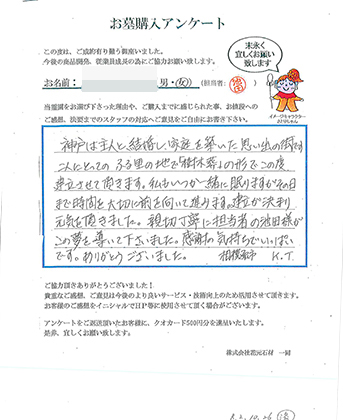 お墓購入アンケート
この度は、ご成約有り難う御座いました。
今後の商品開発、従業員成長の為にご協力お願い致します。
末永く
宜しくお願い
致します
お名前： 男・女 （担当者：
イメージキャラクター
当霊園をお選び下さった理由や、ご購入までに感じられた事、お値段への
ご感想、決済までのスタッフの対応へご意見をご自由にお書き下さい。
神戸は主人と結婚し家庭を築いた思い出の街です
二人にとってのふる里の地で「樹木葬」の形でこの度
建立させて頂きます。私もいつか一緒に眠りますがその日
まで時間を大切に前を向いて進みます。建立が決まり
元気を頂きました。親切丁寧に担当者の池田様が
この夢を導いて下さいました。感謝の気持ちでいっぱい
です。ありがとうございました。 相模原市 K.T
ご協力頂きありがとうございました！
貴重なご感想、ご意見は今後のより良いサービス・技術向上のため活用させて頂きます。
お客様のご感想をイニシャルでHP等に使用させて頂く場合がございます。
アンケートをご返送頂いたお客様に、クオカード500円分を進呈いたします。
是非、宜しくお願い致します。
株式会社霊元石材 一同